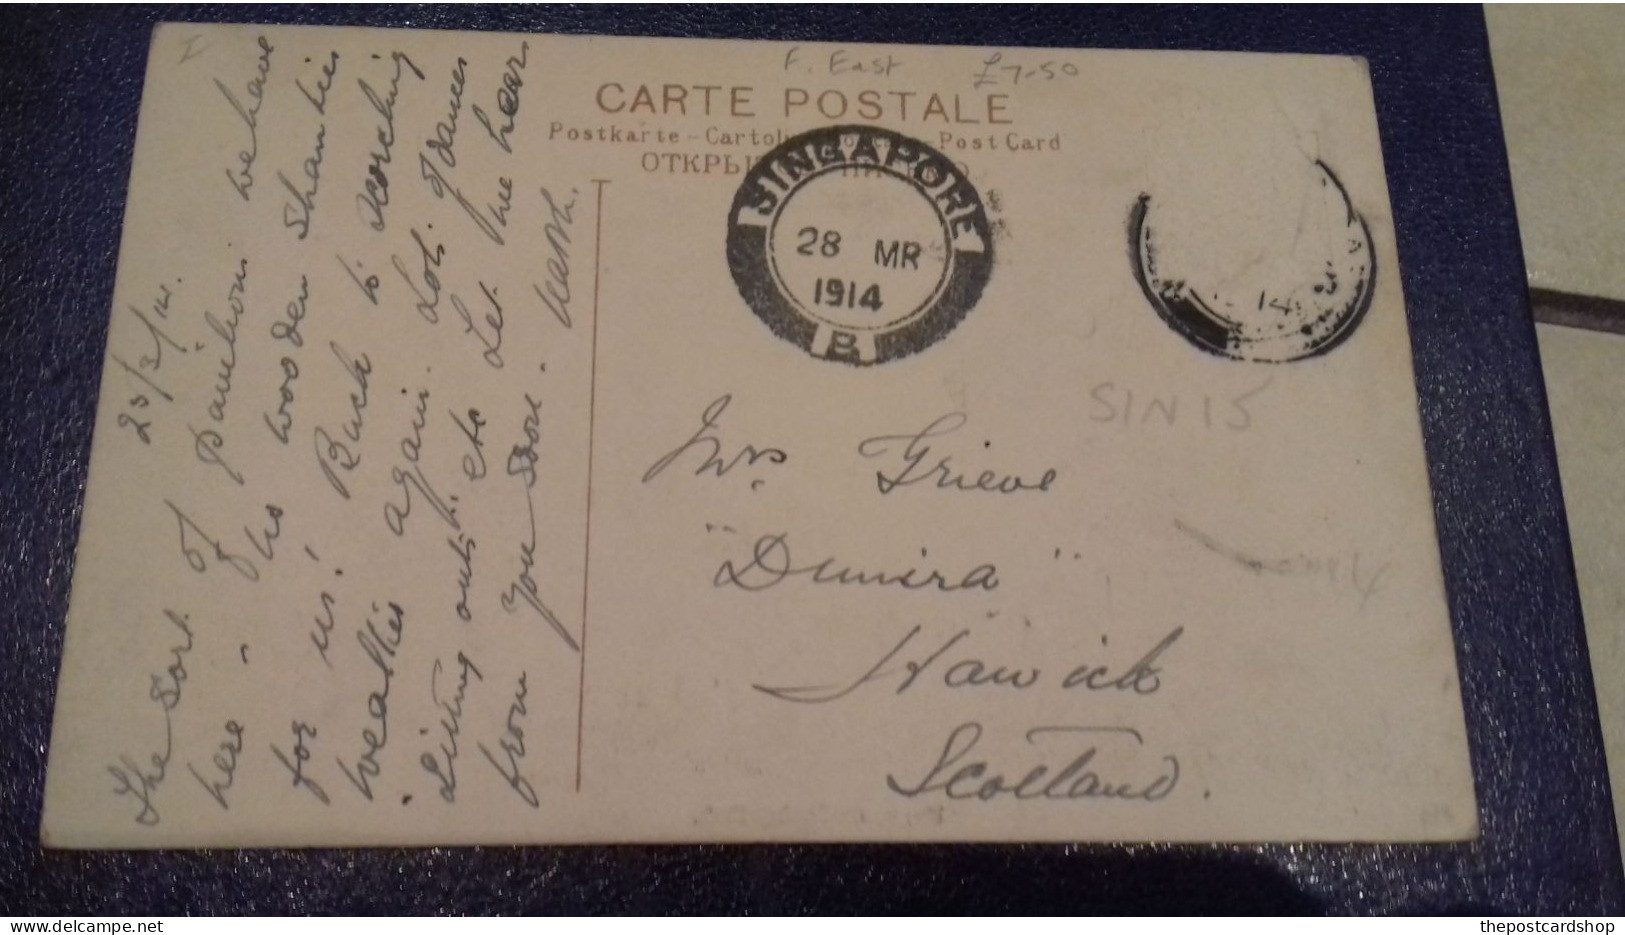 F. East £7-50
CARTE POSTALE
Postkarte - Cartol Post Card
ОТКРЫ
SINGAPORE
28 MR
1914
B
14
SIN 15
23/3/14.
The sort of pavilion we have
here - No wooden shanties
for us! Back to scorching
weather again. Lots of dances
sitting outs. etc Let me hear
from you soon.
Mrs Grieve
"Dunira"
Hawick
Scotland.
thepostcardshop